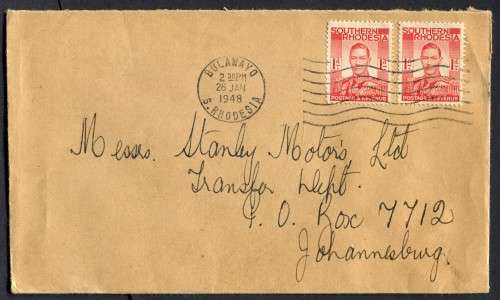 SOUTHERN
RHODESIA
1D 1D
POSTAGE & REVENUE
SOUTHERN
RHODESIA
1D 1D
POSTAGE & REVENUE
BULAWAYO
2 30PM
26 JAN
1948
S. RHODESIA
Messrs. Stanley Motors, Ltd
Transfer Dept.
P. O. Box 7712
Johannesburg.